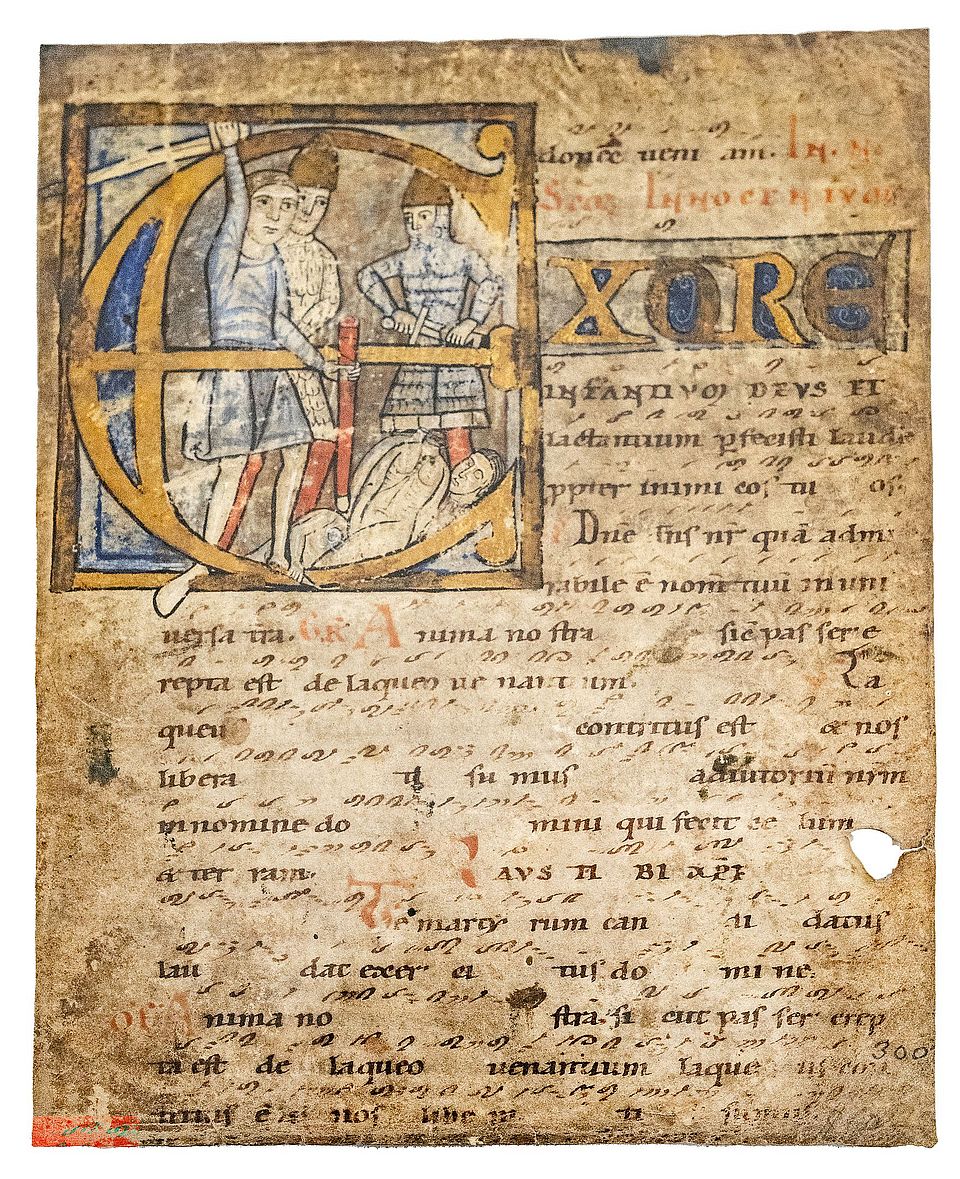 donec veni am. IN N.
Scōꝝ INNOCENTVꝏ
EXORE
INFANTIVꝏ DEVS ET
lactantium ꝑfecisti laudē
ꝓpter inimi cos tu os.
Dn̄e dn̄s nr̄ quā admi
rabile ē nom̄ tuū in uni
uersa tr̄a. GR̄ Anima no stra sic̄ pas ser e
repta est de laqueo ue nant ium. La
queu contritus est & nos
libera ti su mus adiutoriū nr̄m
in nomine do mini qui fecit ce lum
& ter ram. LAVS TI BI XP̄E
Te marty rum can di datus
lau dat exer ci tus do mi ne.
OFF̄ Anima no stra si cut pas ser erep
ta est de laqueo uenantium laque us con
tritus ē & nos libe ra ti sumus
300